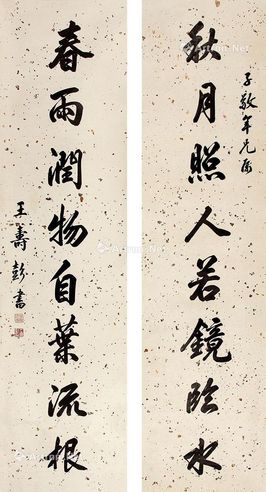 子敬年兄属
秋月照人若鏡臨水
春雨潤物自葉流根
王壽彭書